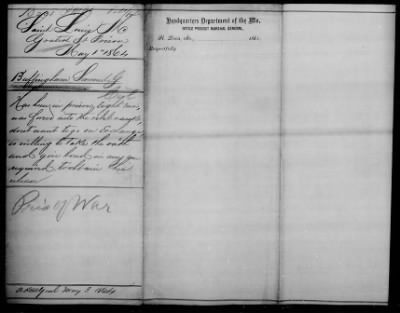 Saint Louis Mo
Gratiot St Prison
May 1st 1864
Buffingham Samuel G
Has been in prison eight mos
was forced into the rebel ranks
dont want to go on Exchange
is willing to take the oath
and give bond in any
required to obtain his
release
Pris of War
May 3. 1864
Headquarters Department of the Mo.
OFFICE PROVOST MARSHAL GENERAL,
St. Louis, Mo., 186
Respectfully